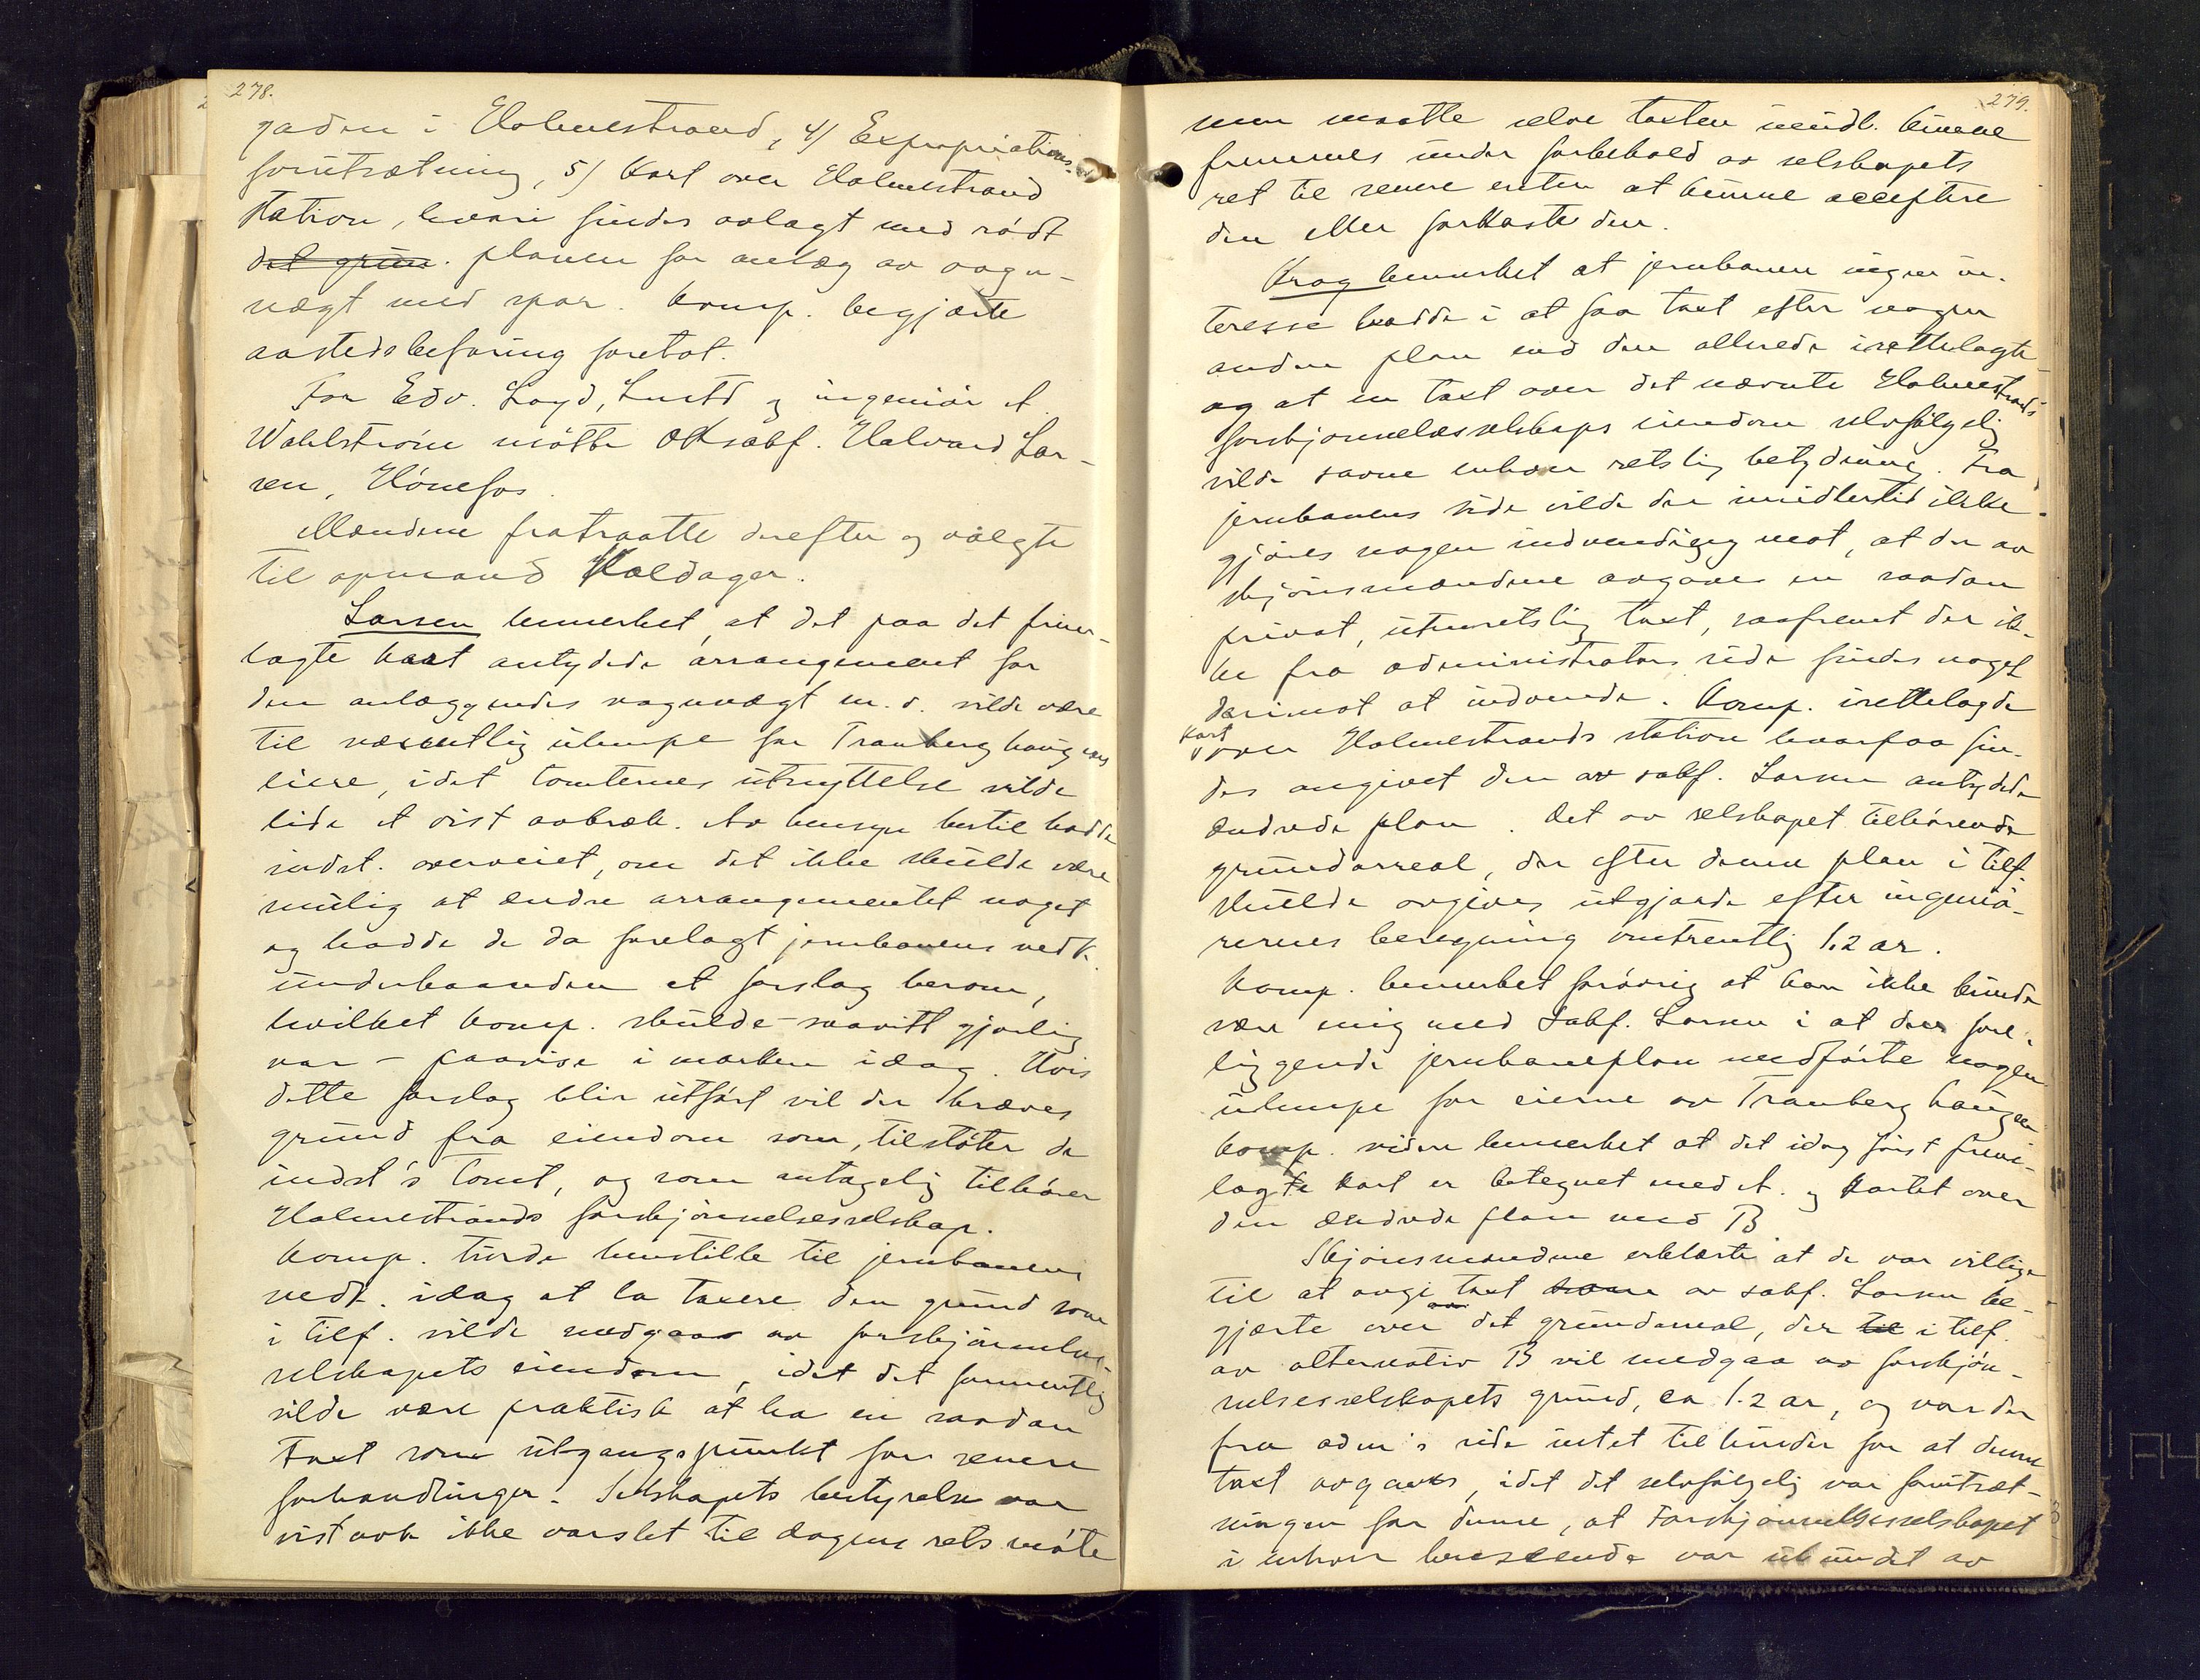 278.
gaden i Holmestrand, 4/ Expropriations-
forutsætning, 5/ Kart over Holmestrand
station, hvori findes avlagt med rødt
det grun. planen for anlæg av vogn-
vægt med spor. Komp. begjærte
aastedsbefaring foretat.
For Edv. Loyd, Lysted og ingeniør A.
Wahlstrøm møtte OKsakf. Halvard Lar-
sen, Hønefos.
Mændene fratraatte derefter og valgte
til opmand Haldager.
Larsen bemerket, at det paa det frem-
lagte kart antydede arrangement for
den anlæggendes vognvægt m. v. vilde være
til væsentlig ulempe for Tranberghaugens
eiere, idet tomternes utnyttelse vilde
lide et vist avbræk. Av hensyn hertil hadde
indst. overveiet, om det ikke skulde være
mulig at ændre arrangementet noget
og hadde de da forelagt jernbanens vedk.
underhaanden et forslag herom,
hvilket komp. skulde – saavitt gjørlig
var – paavise i marken idag. Hvis
dette forslag blir utført vil der kræves
grund fra eiendom som, tilstøter de
indst's tomt, og som antagelig tilhører
Holmestrands forskjønnelsesselskap.
Komp. turde henstille til jernbanens
vedk. idag at la taxere den grund som
i tilf. vilde medgaa av forskjønnelses-
selskapets eiendom, idet det formentlig
vilde være praktisk at ha en saadan
taxt som utgangspunkt for senere
forhandlinger. Selskapets bestyrelse var
vistnok ikke varslet til dagens retsmøte
279.
men maatte selve taxten uendl. kunne
fremmes under forbehold av selskapets
ret til senere enten at kunne acceptere
den eller forkaste den.
Krag bemerket at jernbanen ingen in-
teresse hadde i at faa taxt efter nogen
anden plan end den allerede irettelagte
og at en taxt over det nævnte Holmestrands
forskjønnelsesselskaps eiendom selvfølgelig
vilde savne enhver retslig betydning. Fra
jernbanens side vilde der imidlertid ikke
gjøres nogen indvending mot, at der av
skjønsmændene avgaves en saadan
privat, utenretslig taxt, saafremt der ik-
ke fra administrators side findes noget
derimot at indvende. Komp. irettelagde
kart
over Holmestrands station hvorpaa fin-
des angivet den av sakf. Larsen antydede
ændrede plan. Det av selskapet tilhørende
grundarreal, der efter denne plan i tilf.
skulde avgives utgjorde efter ingeniø-
rernes beregning omtrentlig 1.2 ar.
Komp. bemerket forøvrig at han ikke kunde
være enig med Sakf. Larsen i at den fore-
liggende jernbaneplan medførte nogen
ulempe for eierne av Tranberghaugen
Komp. videre bemerket at det idag først frem-
lagte kart er betegnet med A. og kartet over
den ændrede plan med B
Skjønsmændene erklærte at de var villige
til at avgi taxt som av sakf. Larsen be-
gjærte over det grundareal, der til i tilf.
av alternativ B vil medgaa av forskjøn-
nelsesselskapets grund, ca 1.2 ar, og var der
fra adm's side intet til hinder for at denne
taxt avgaves, idet det selvfølgelig var forutsæt-
ningen for denne, at Forskjønnelsesselskapet
i enhver henseende var ubundet av